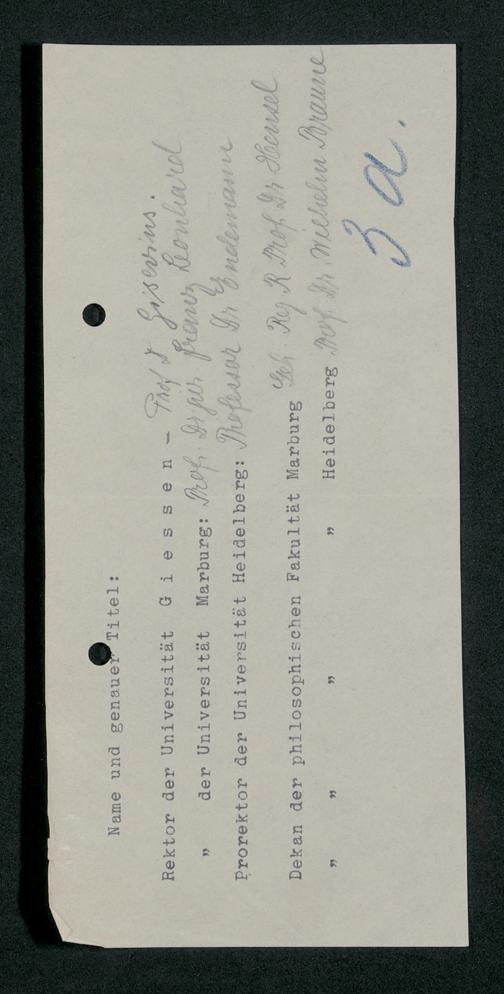 Name und genauer Titel:
Rektor der Universität G i e s s e n - Prof Dr Gisevius.
„ der Universität Marburg: Prof. Dr jur Franz Leonhard
Prorektor der Universität Heidelberg: Professor Dr Endemann
Dekan der philosophischen Fakultät Marburg Geh. Reg R. Prof. Dr Hensel
„ „ „ „ Heidelberg Prof. Dr. Wilhelm Braune
3 a.